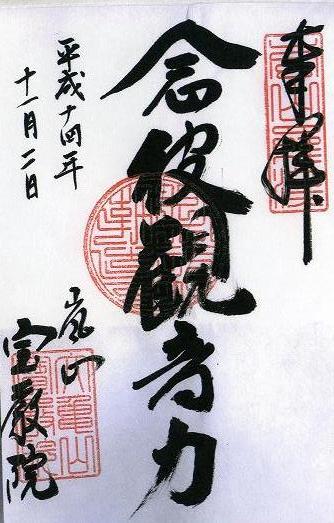 奉拝
念彼觀音力
平成十四年
十一月二日
嵐山
宝厳院